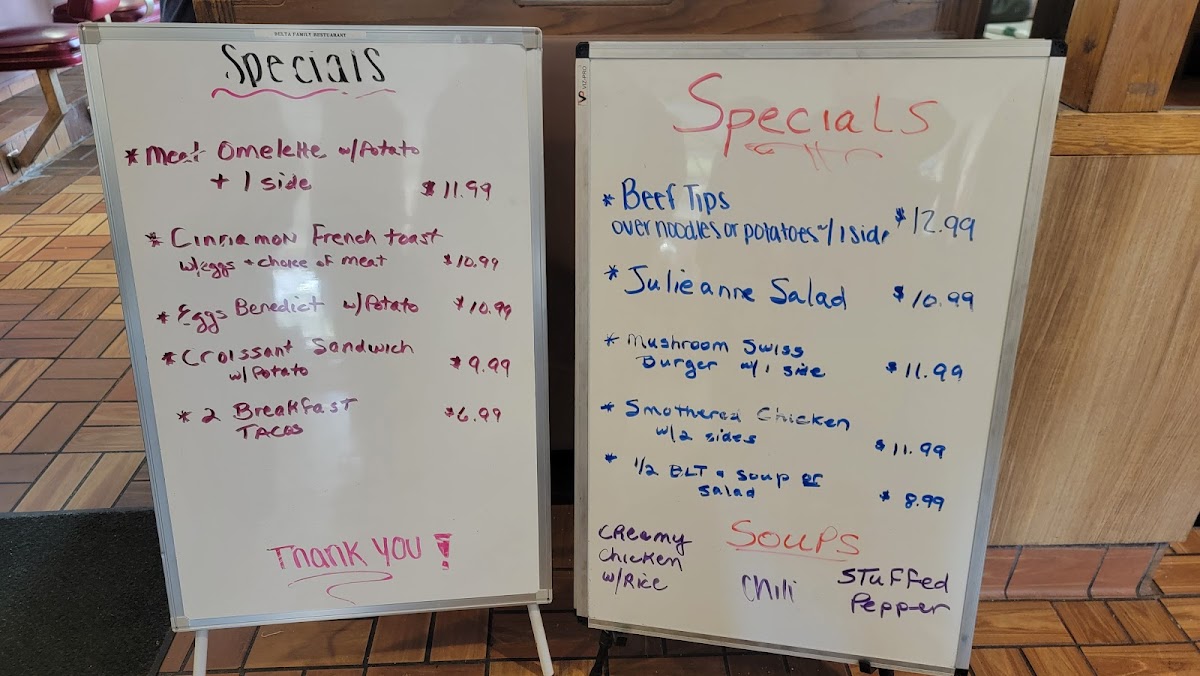 DELTA FAMILY RESTUARANT
Specials
* Meat Omelette w/Potato
+ 1 side $11.99
* Cinnamon French toast
w/eggs + choice of meat $10.99
* Eggs Benedict w/Potato $10.99
* Croissant Sandwich
w/Potato $9.99
* 2 Breakfast $6.99
TACOS
Thank you!
VIZ-PRO
Specials
* Beef Tips
over noodles or potatoes w/1 side $12.99
* Julieanne Salad $10.99
* Mushroom Swiss
Burger w/1 side $11.99
* Smothered Chicken
w/2 sides $11.99
* 1/2 BLT & soup or
salad $8.99
Soups
Creamy
Chicken
w/Rice
Chili
Stuffed
Pepper